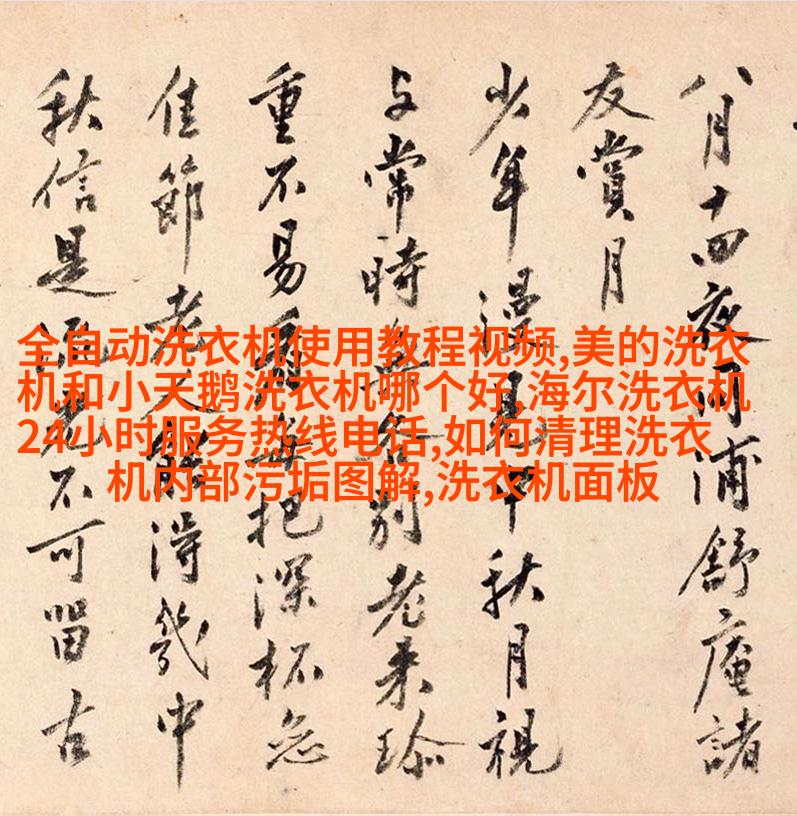 八月十四夜同浦舒庵諸
友賞月
少年漫見中秋月視
与常時無各別老来珎
重不易把深杯
佳節老人能得幾中
秋信是流光不可留古
全自动洗衣机使用教程视频,美的洗衣
机和小天鹅洗衣机哪个好,海尔洗衣机
24小时服务热线电话,如何清理洗衣
机内部污垢图解,洗衣机面板